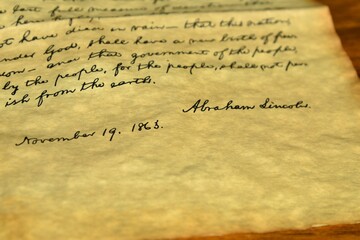 last full measure of
not have died in vain— that this nation,
under God, shall have a new birth of free
dom— and that government of the people,
by the people, for the people, shall not per
ish from the earth.
Abraham Lincoln.
November 19. 1863.